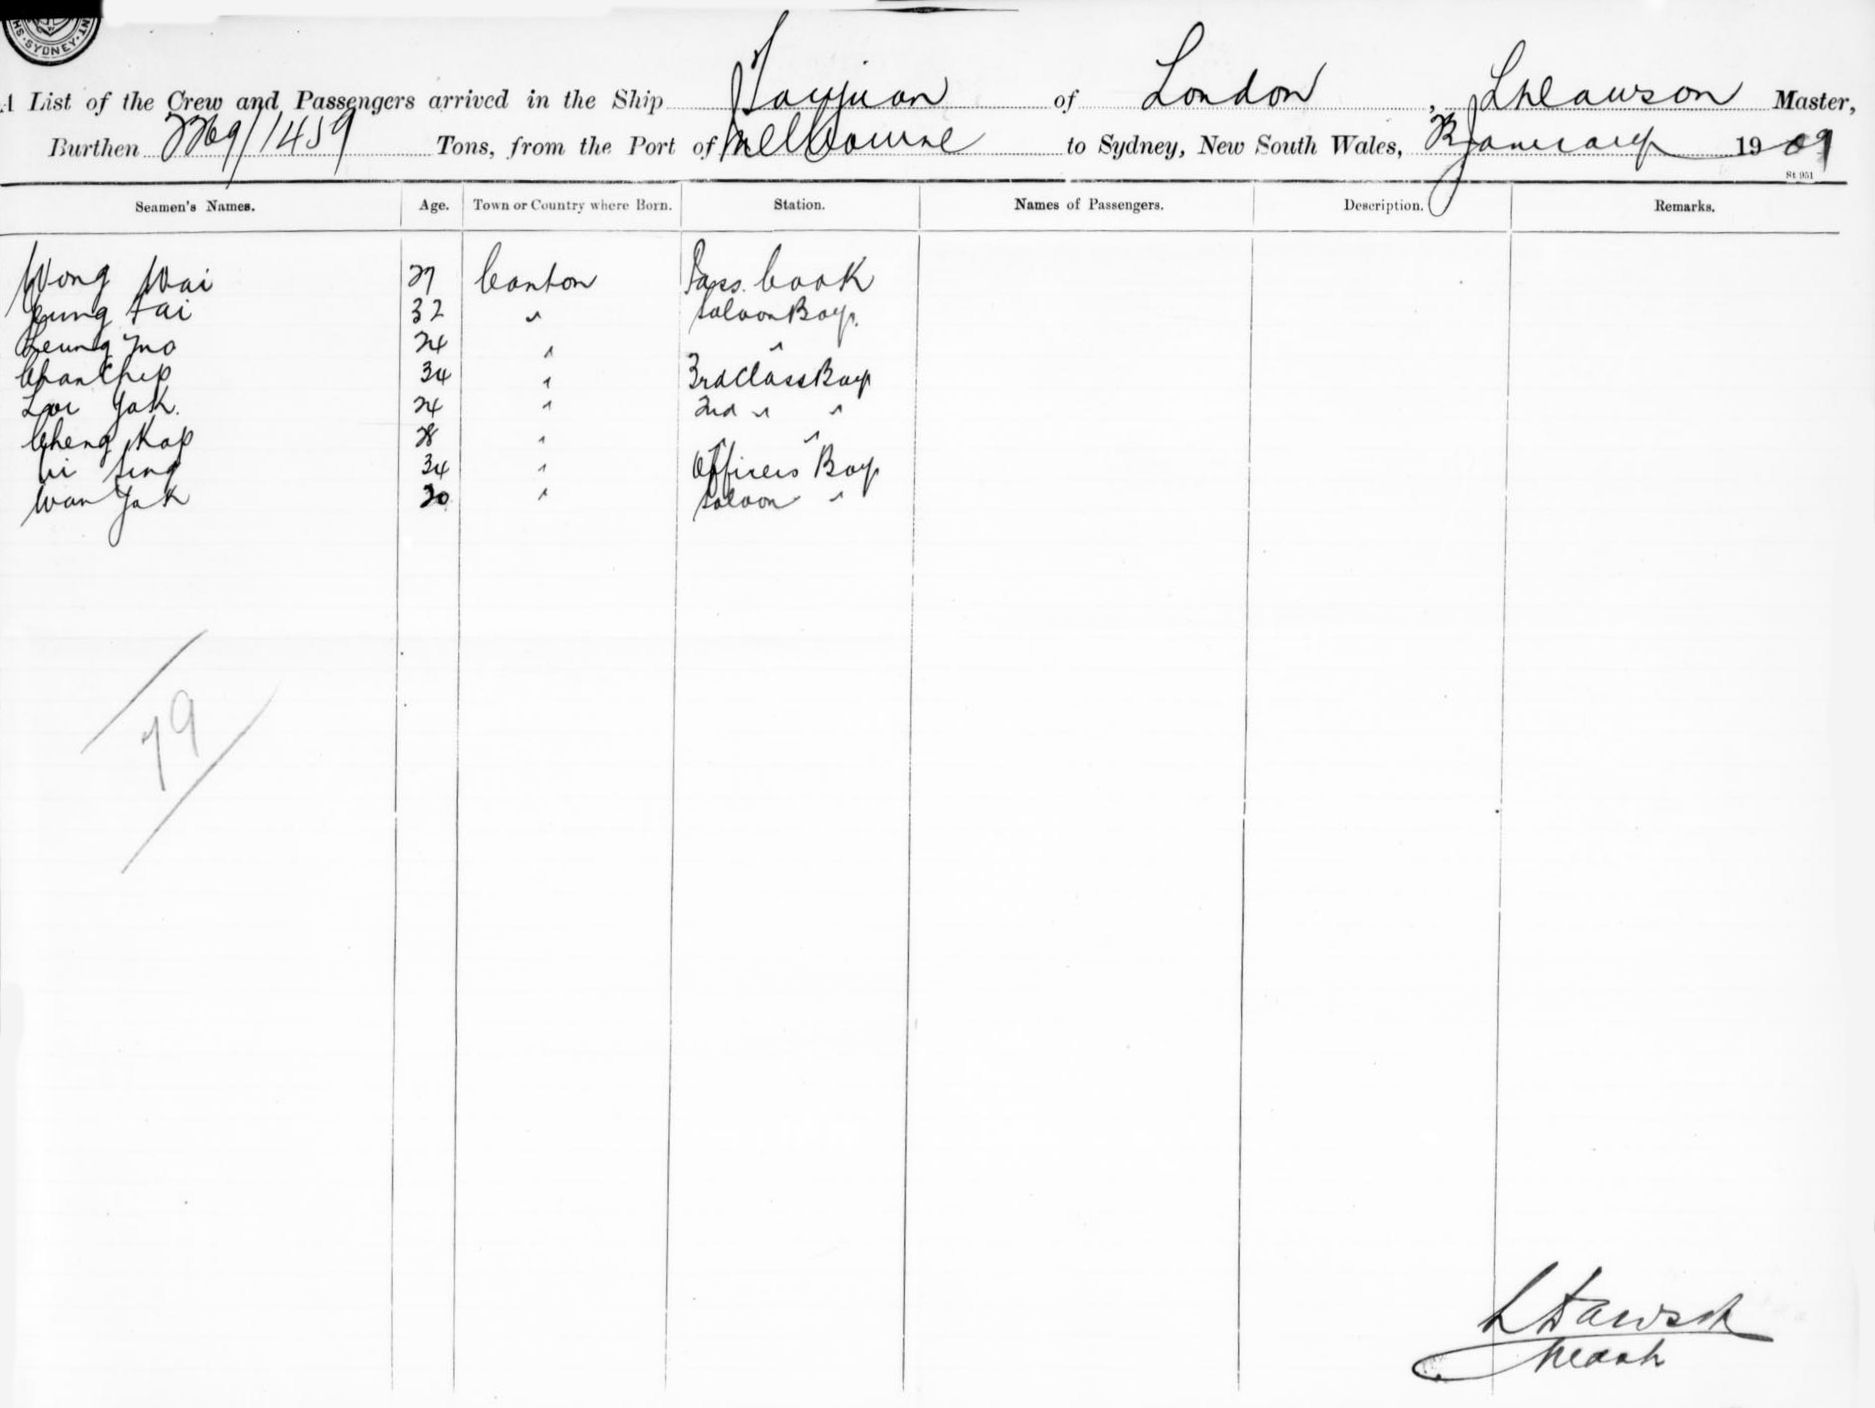 SYDNEY
A List of the Crew and Passengers arrived in the Ship Taiyuan of London, L Dawson Master,
Burthen 2269/1459 Tons, from the Port of Melbourne to Sydney, New South Wales, January 1909
St 951
Seamen's Names. Age. Town or Country where Born. Station. Names of Passengers. Description. Remarks.
Wong Wai 27 Canton Pass. Cook
Yeung Tai 32 " Saloon Boy.
Leung Mo 24 " "
Chan Chip 34 " 3rd Class Boy
Loi Yak. 24 " 2nd " "
Cheng Kap 28 " "
Li Sing 34 " Officers Boy
Wan Yak 20 " Saloon "
79
L Dawson